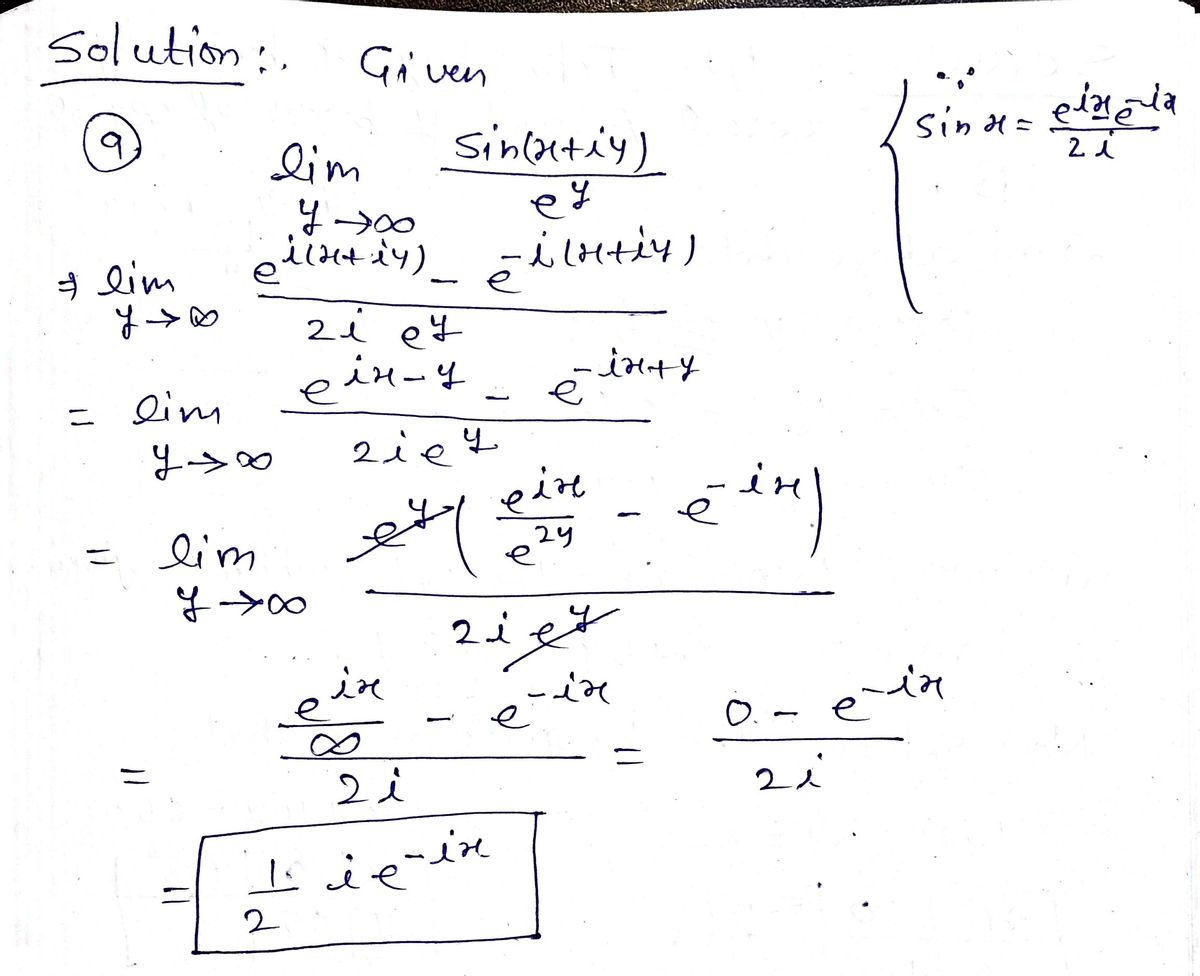 Solution :. Given
(a)
lim_{y→∞} sin(x+iy) / e^y
{ ∵ sin x = (e^{ix} - e^{-ix}) / 2i
⇒ lim_{y→∞} (e^{i(x+iy)} - e^{-i(x+iy)}) / (2i e^y)
= lim_{y→∞} (e^{ix-y} - e^{-ix+y}) / (2i e^y)
= lim_{y→∞} e^y (e^{ix} / e^{2y} - e^{-ix}) / (2i e^y)
= (e^{ix} / ∞ - e^{-ix}) / 2i = (0 - e^{-ix}) / 2i
= 1/2 i e^{-ix}